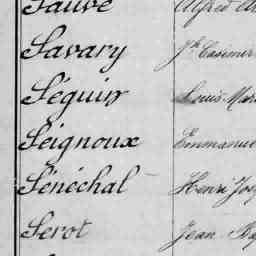 Sauve Alfred
Savary Jh Casimir
Séguin Louis Mar
Seignoux Emmanue
Sénéchal Henri Jos
Serot Jean Ba